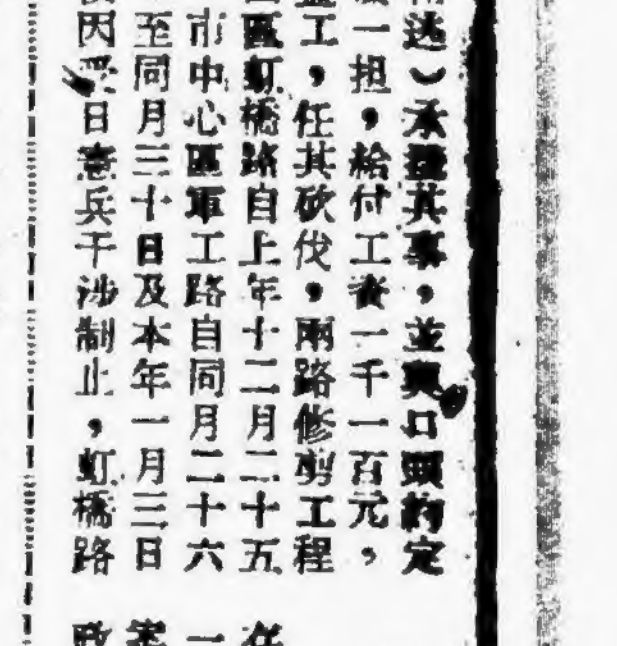 逃）承攬其事，並與口頭約定
一担，給付工資一千一百元，
工，任其砍伐，兩路修剪工程
區虹橋路自上年十二月二十五
市中心區軍工路自同月二十六
至同月三十日及本年一月三日
因受日憲兵干涉制止，虹橋路
在
一
案
政